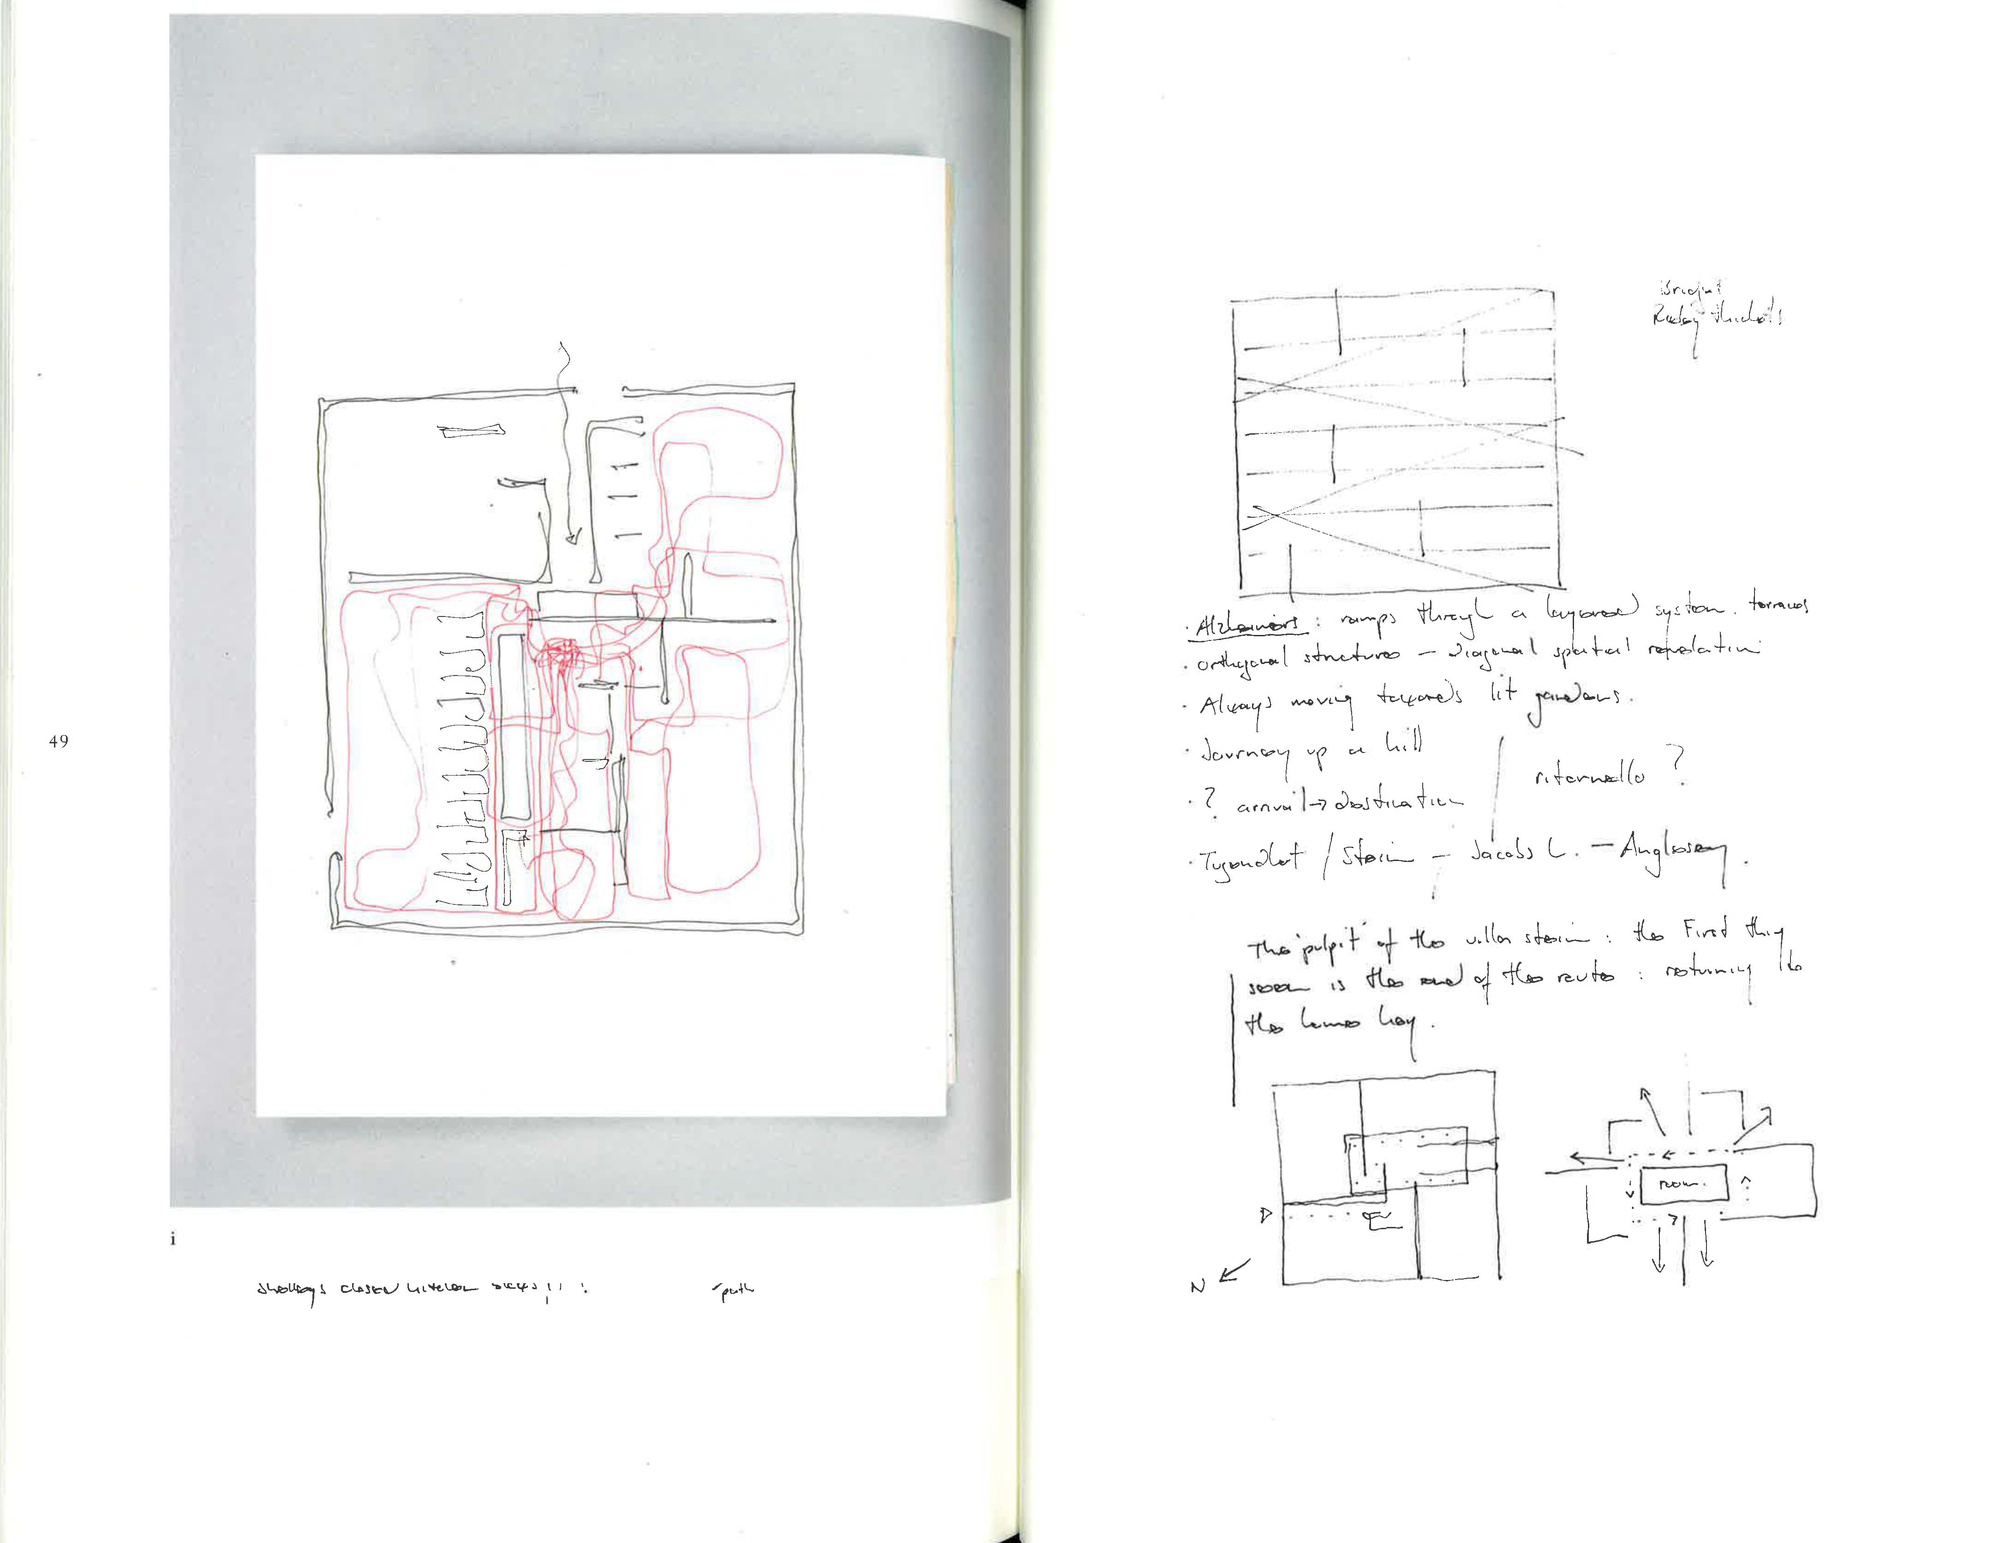 49
i
path
Alzheimers : ramps through a layered system. terraces
· orthogonal structures – diagonal spatial
· Always moving towards lit gardens.
· Journey up a hill
ritornello ?
· ? arrival → destination
· Tugendhat / Stein – Jacobs L. – Anglesey.
The 'pulpit' of the villa stein : the First thing
seen is the end of the route : returning to
the home key.
room.
N